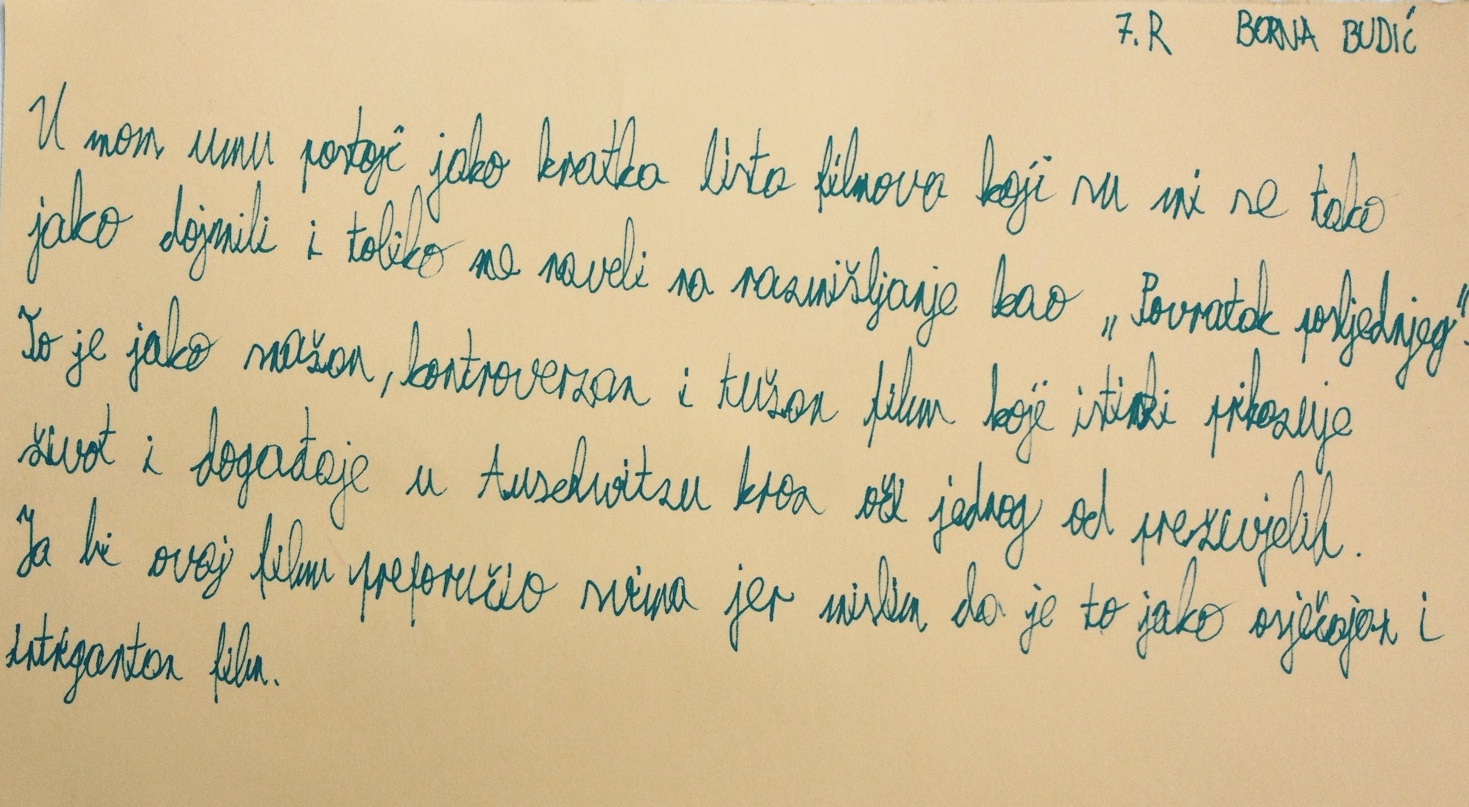 7.R BORNA BUDIĆ
U mom umu postoji jako kratka lista filmova koji su mi se tako
jako dojmili i toliko me naveli na razmišljanje kao „Povratak posljednjeg“.
To je jako snažan, kontroverzan i tužan film koji istinski prikazuje
život i događaje u Auschwitzu kroz oči jednog od preživjelih.
Ja bi ovaj film preporučio svima jer mislim da je to jako osječajan i
intrigantan film.